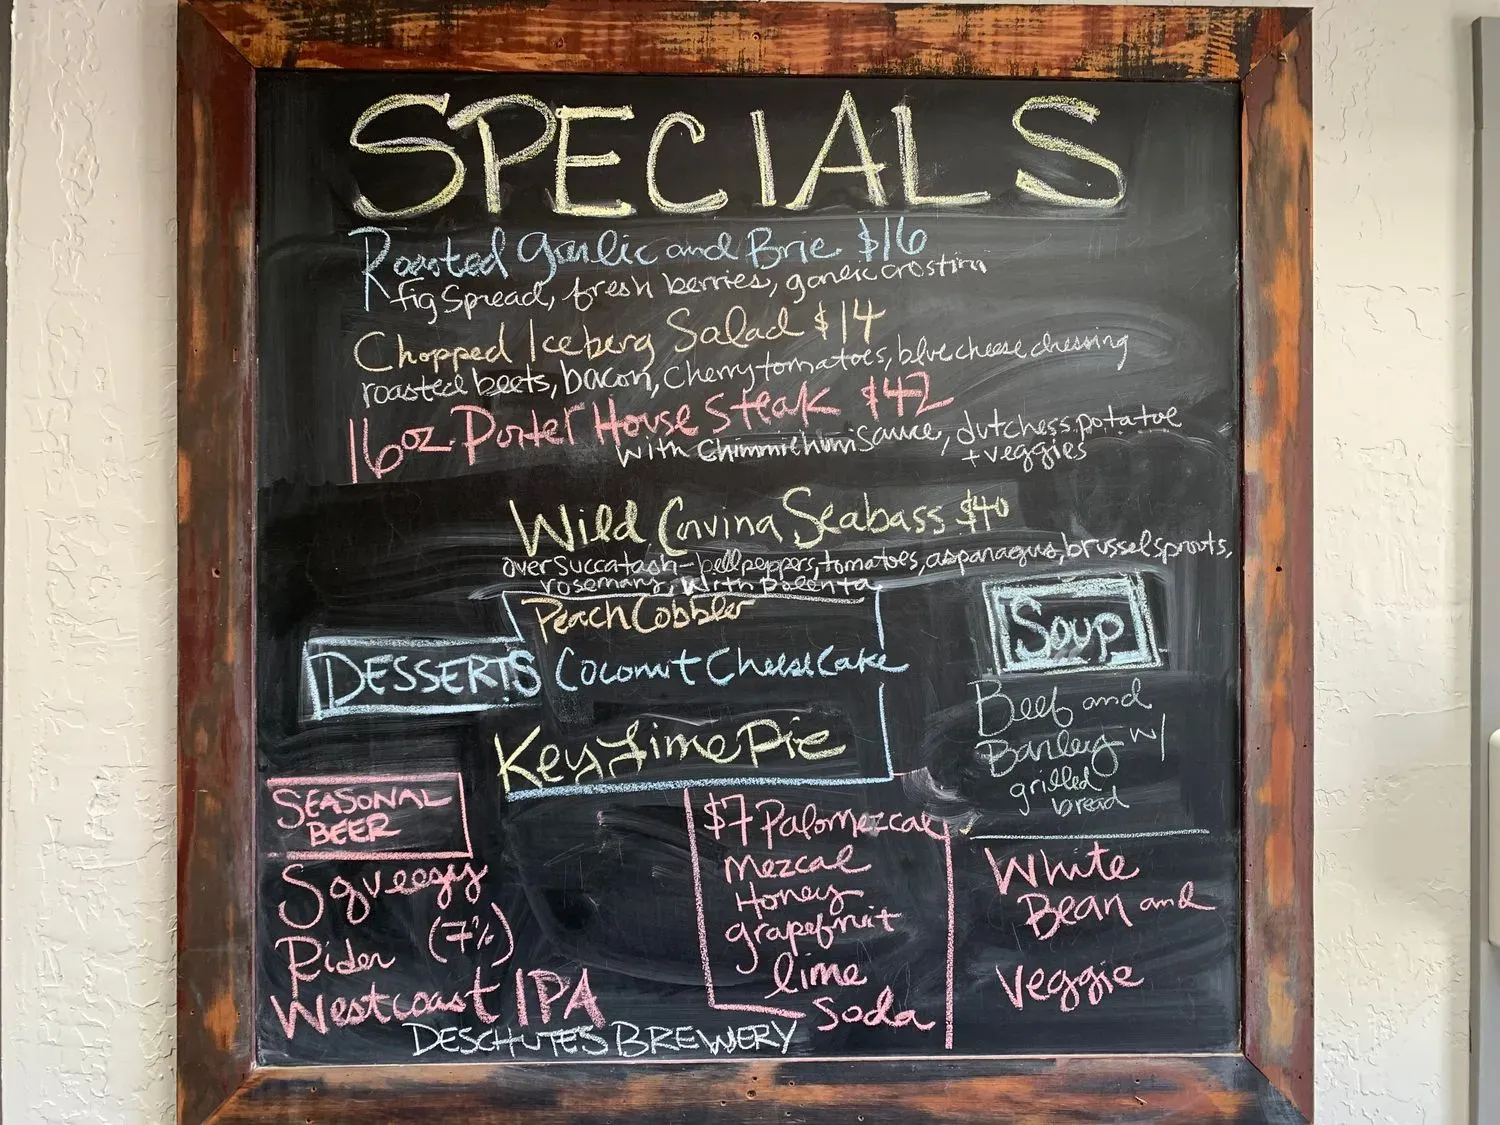 SPECIALS
Roasted Garlic and Brie $16
fig spread, fresh berries, garlic crostini
Chopped Iceberg Salad $14
roasted beets, bacon, cherry tomatoes, blue cheese dressing
16oz. Porter House Steak $42
with Chimmichurri Sauce, dutchess potatoe
+ veggies
Wild Corvina Seabass $40
over Succatash - bell peppers, tomatoes, asparagus, brussel sprouts,
rosemary, with polenta
DESSERTS
Peach Cobbler
Coconut Cheese Cake
Key Lime Pie
Soup
Beef and
Barley w/
grilled
bread
White
Bean and
Veggie
SEASONAL
BEER
Squeegy
Rider (7%)
Westcoast IPA
DESCHUTES BREWERY
$7 Palomezcal
Mezcal
Honey
grapefruit
lime
Soda